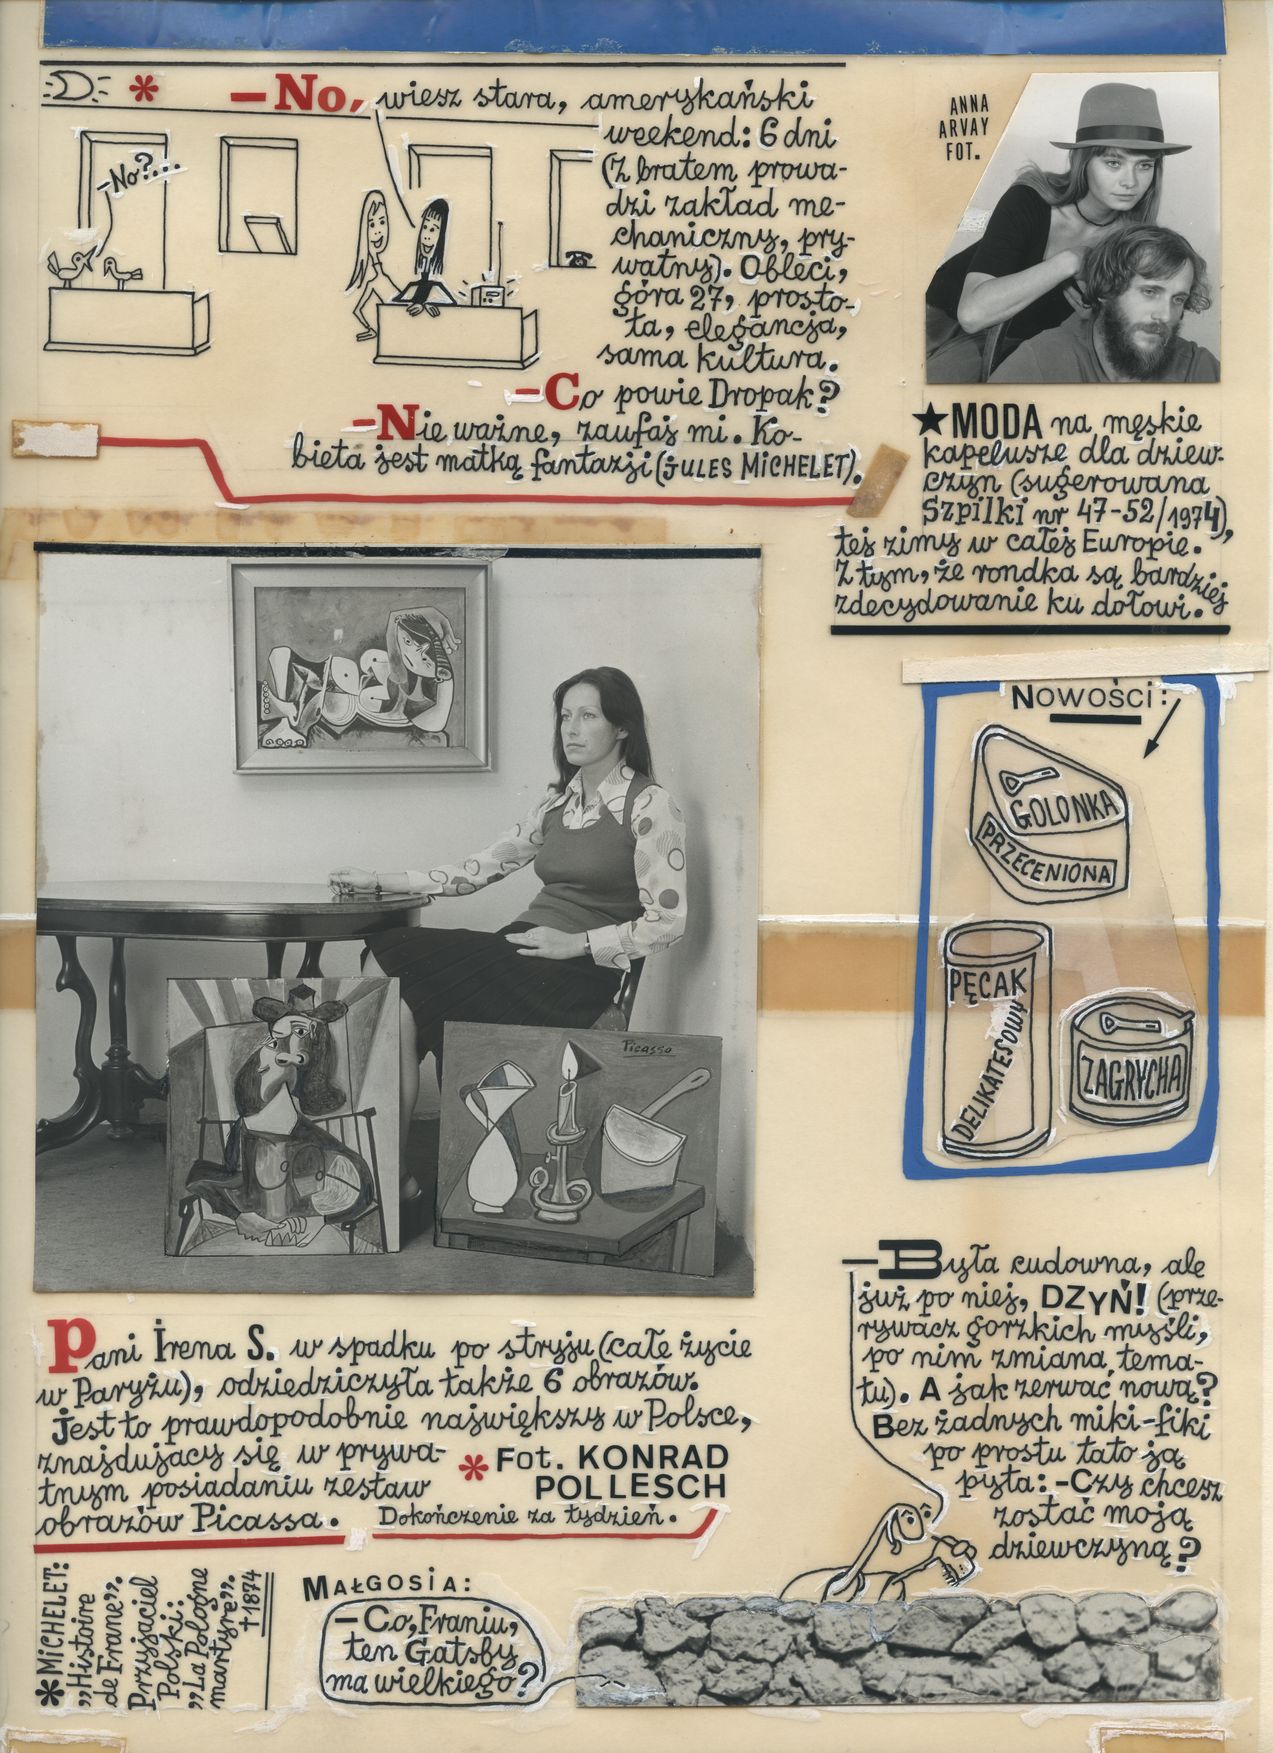 * –No, wiesz stara, amerykański
weekend: 6 dni
(z bratem prowa-
dzi zakład me-
chaniczny, pry-
watny). Obleci,
góra 27, prosto-
ta, elegancja,
sama kultura.
–Co powie Dropak?
–Nie ważne, zaufaj mi. Ko-
bieta jest matką fantazji (JULES MICHELET).
–No?...
ANNA
ARVAY
FOT.
★MODA na męskie
kapelusze dla dziew-
czyn (sugerowana
Szpilki nr 47-52/1974),
tej zimy w całej Europie.
Z tym, że rondka są bardziej
zdecydowanie ku dołowi.
Picasso
Nowości:
GOLONKA
PRZECENIONA
PĘCAK
DELIKATESOWY
ZAGRYCHA
Pani Irena S. w spadku po stryju (całe życie
w Paryżu), odziedziczyła także 6 obrazów.
Jest to prawdopodobnie największy w Polsce,
znajdujacy się w prywa-
tnym posiadaniu zestaw
obrazów Picassa.
* Fot. KONRAD
POLLESCH
Dokończenie za tydzień.
–Była cudowna, ale
już po niej, DZYŃ! (prze-
rywacz gorzkich myśli,
po nim zmiana tema-
tu). A jak zerwać nową?
Bez żadnych miki-fiki
po prostu tato ją
pyta: –Czy chcesz
zostać moją
dziewczyną?
*MICHELET:
„Histoire
de France”.
Przyjaciel
Polski:
„La Pologne
martyre”.
†1874
MAŁGOSIA:
–Co, Franiu,
ten Gatsby
ma wielkiego?